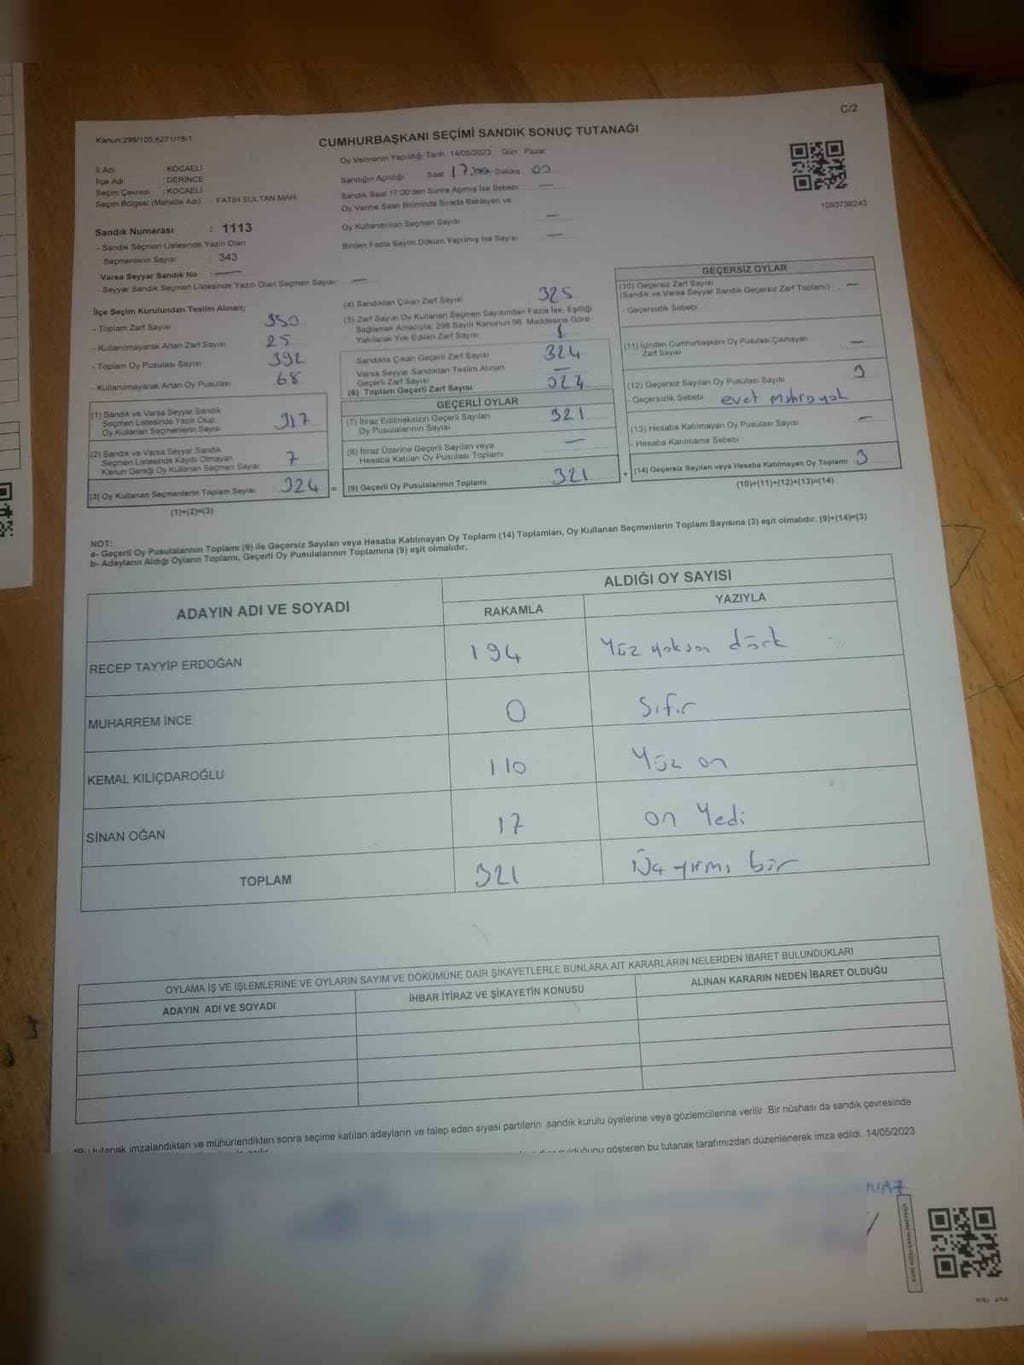 C/2
Kanun:298/105,6271/18-1
CUMHURBAŞKANI SEÇİMİ SANDIK SONUÇ TUTANAĞI
İl Adı : KOCAELİ
İlçe Adı : DERİNCE
Seçim Çevresi : KOCAELİ
Seçim Bölgesi (Mahalle Adı) FATİH SULTAN MAH.
Sandık Numarası : 1113
- Sandık Seçmen Listesinde Yazılı Olan
Seçmenlerin Sayısı : 343
Varsa Seyyar Sandık No : —
- Seyyar Sandık Seçmen Listesinde Yazılı Olan Seçmen Sayısı —
Oy Vermenin Yapıldığı Tarih 14/05/2023 Gün : Pazar
Sandığın Açıldığı Saat 17.00 Dakika 00
Sandık Saat 17:00'den Sonra Açılmış İse Sebebi —
Oy Verme Saati Bitiminde Sırada Bekleyen ve
Oy Kullandırılan Seçmen Sayısı —
Birden Fazla Sayım Döküm Yapılmış İse Sayısı —
1093738243
İlçe Seçim Kurulundan Teslim Alınan;
- Toplam Zarf Sayısı 350
- Kullanılmayarak Artan Zarf Sayısı 25
- Toplam Oy Pusulası Sayısı 392
- Kullanılmayarak Artan Oy Pusulası 68
(1) Sandık ve Varsa Seyyar Sandık
Seçmen Listesinde Yazılı Olup
Oy Kullanan Seçmenlerin Sayısı 317
(2) Sandık ve Varsa Seyyar Sandık
Seçmen Listesinde Kayıtlı Olmayan
Kanun Gereği Oy Kullanan Seçmen Sayısı 7
(3) Oy Kullanan Seçmenlerin Toplam Sayısı 324
(1)+(2)=(3)
(4) Sandıktan Çıkan Zarf Sayısı 325
(5) Zarf Sayısı Oy Kullanan Seçmen Sayısından Fazla İse, Eşitliği
Sağlamak Amacıyla, 298 Sayılı Kanunun 98. Maddesine Göre
Yakılarak Yok Edilen Zarf Sayısı 1
Sandıkta Çıkan Geçerli Zarf Sayısı 324
Varsa Seyyar Sandıktan Teslim Alınan
Geçerli Zarf Sayısı —
(6) Toplam Geçerli Zarf Sayısı 324
GEÇERLİ OYLAR
(7) İtiraz Edilmeksizin Geçerli Sayılan
Oy Pusulalarının Sayısı 321
(8) İtiraz Üzerine Geçerli Sayılan veya
Hesaba Katılan Oy Pusulası Toplamı —
(9) Geçerli Oy Pusulalarının Toplamı 321
GEÇERSİZ OYLAR
(10) Geçersiz Zarf Sayısı —
(Sandık ve Varsa Seyyar Sandık Geçersiz Zarf Toplamı)
- Geçersizlik Sebebi
(11) İçinden Cumhurbaşkanı Oy Pusulası Çıkmayan
Zarf Sayısı —
(12) Geçersiz Sayılan Oy Pusulası Sayısı 3
- Geçersizlik Sebebi evet
(13) Hesaba Katılmayan Oy Pusulası Sayısı —
- Hesaba Katılmama Sebebi
(14) Geçersiz Sayılan veya Hesaba Katılmayan Oy Toplamı 3
(10)+(11)+(12)+(13)=(14)
NOT:
a- Geçerli Oy Pusulalarının Toplamı (9) ile Geçersiz Sayılan veya Hesaba Katılmayan Oy Toplamı (14) Toplamları, Oy Kullanan Seçmenlerin Toplam Sayısına (3) eşit olmalıdır. (9)+(14)=(3)
b- Adayların Aldığı Oyların Toplamı, Geçerli Oy Pusulalarının Toplamına (9) eşit olmalıdır.
ADAYIN ADI VE SOYADI
ALDIĞI OY SAYISI
RAKAMLA YAZIYLA
RECEP TAYYİP ERDOĞAN 194 Yüz doksan dört
MUHARREM İNCE 0 Sıfır
KEMAL KILIÇDAROĞLU 110 Yüz on
SİNAN OĞAN 17 on Yedi
TOPLAM 321 Üç yirmi bir
OYLAMA İŞ VE İŞLEMLERİNE VE OYLARIN SAYIM VE DÖKÜMÜNE DAİR ŞİKAYETLERLE BUNLARA AİT KARARLARIN NELERDEN İBARET BULUNDUKLARI
ADAYIN ADI VE SOYADI İHBAR İTİRAZ VE ŞİKAYETİN KONUSU ALINAN KARARIN NEDEN İBARET OLDUĞU
*Bu tutanak imzalandıktan ve mühürlendikten sonra seçime katılan adayların ve talep eden siyasi partilerin sandık kurulu üyelerine veya gözlemcilerine verilir. Bir nüshası da sandık çevresinde
olduğunu gösteren bu tutanak tarafımızdan düzenlenerek imza edildi. 14/05/2023